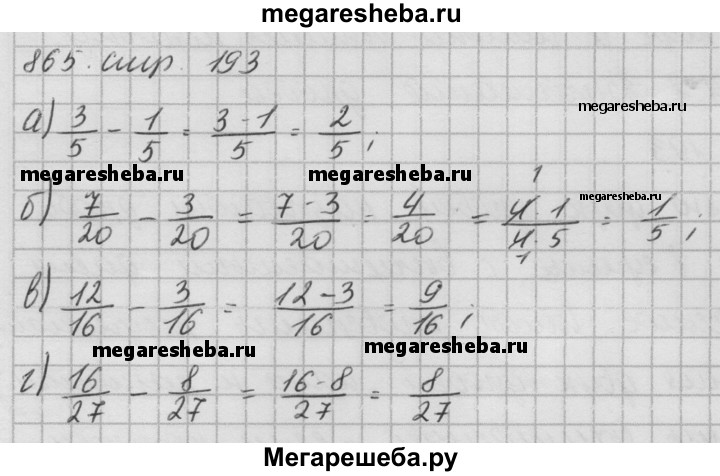 megaresheba.ru
865. стр. 193
megaresheba.ru
а) 3/5 - 1/5 = (3-1)/5 = 2/5;
megaresheba.ru megaresheba.ru
б) 7/20 - 3/20 = (7-3)/20 = 4/20 = (4·1)/(4·5) = 1/5;
1 1
megaresheba.ru
в) 12/16 - 3/16 = (12-3)/16 = 9/16;
megaresheba.ru megaresheba.ru
г) 16/27 - 8/27 = (16-8)/27 = 8/27
Мегарешеба.ру